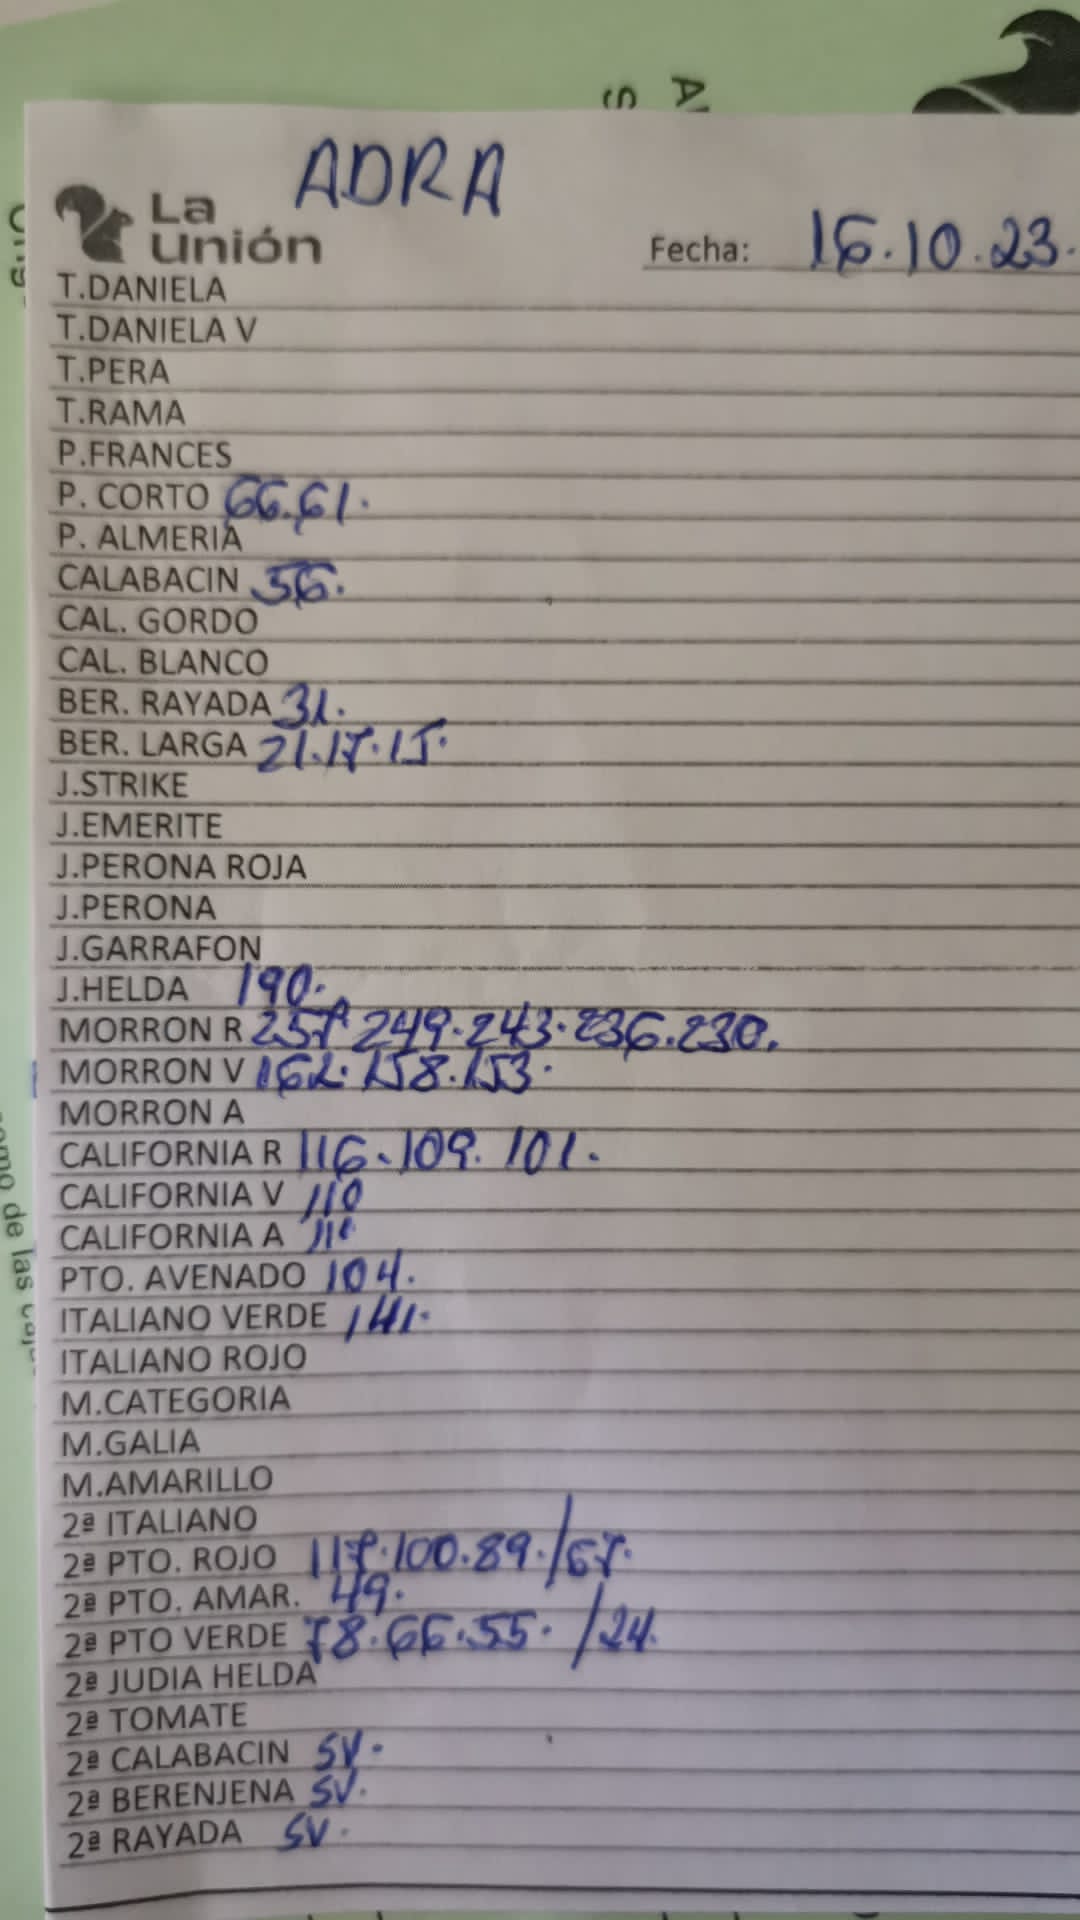 ADRA
La
Unión
Fecha: 16.10.23.
T.DANIELA
T.DANIELA V
T.PERA
T.RAMA
P.FRANCES
P. CORTO 66.61.
P. ALMERIA
CALABACIN 56.
CAL. GORDO
CAL. BLANCO
BER. RAYADA 31.
BER. LARGA 21.17.15.
J.STRIKE
J.EMERITE
J.PERONA ROJA
J.PERONA
J.GARRAFON
J.HELDA 190.
MORRON R 257. 249.243.236.230.
MORRON V 162.158.153.
MORRON A
CALIFORNIA R 116.109.101.
CALIFORNIA V 110
CALIFORNIA A
PTO. AVENADO 104.
ITALIANO VERDE 141.
ITALIANO ROJO
M.CATEGORIA
M.GALIA
M.AMARILLO
2ª ITALIANO
2ª PTO. ROJO 117.100.89./67.
2ª PTO. AMAR. 49.
2ª PTO VERDE 78.66.55. /24.
2ª JUDIA HELDA
2ª TOMATE
2ª CALABACIN SV.
2ª BERENJENA SV.
2ª RAYADA SV.